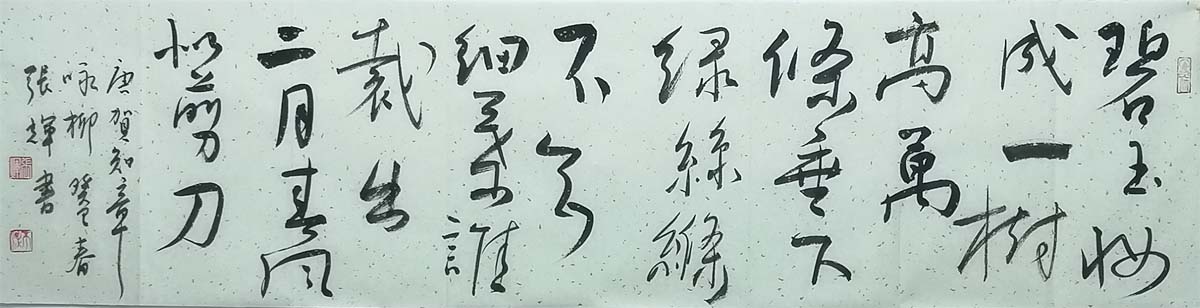 碧玉妆
成一樹
高萬
條垂下
緑絲絛
不知
細葉誰
裁出
二月春風
似剪刀
唐賀知章
咏柳 癸卯春
張輝書